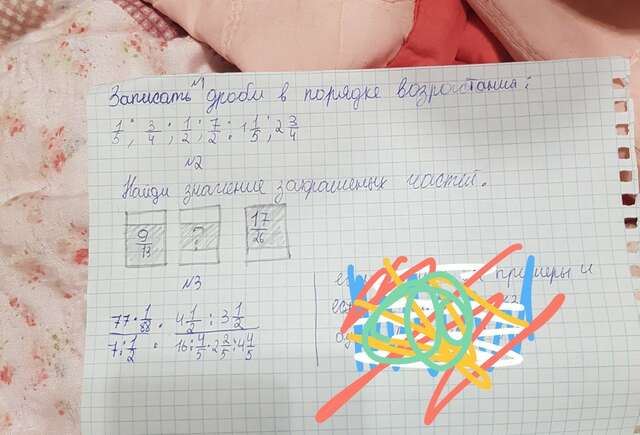 №1
Записать дроби в порядке возростания:
1/5 ; 3/4 ; 1/2 ; 7/2 ; 1 1/5 ; 2 3/4
№2
Найди значение закрашеных частей.
9/13 ? 17/26
№3
77 · 1/88 · 4 1/2 : 3 1/2
7 : 1/2 · 16 : 4/5 · 2 2/5 : 4 4/5
примеры и